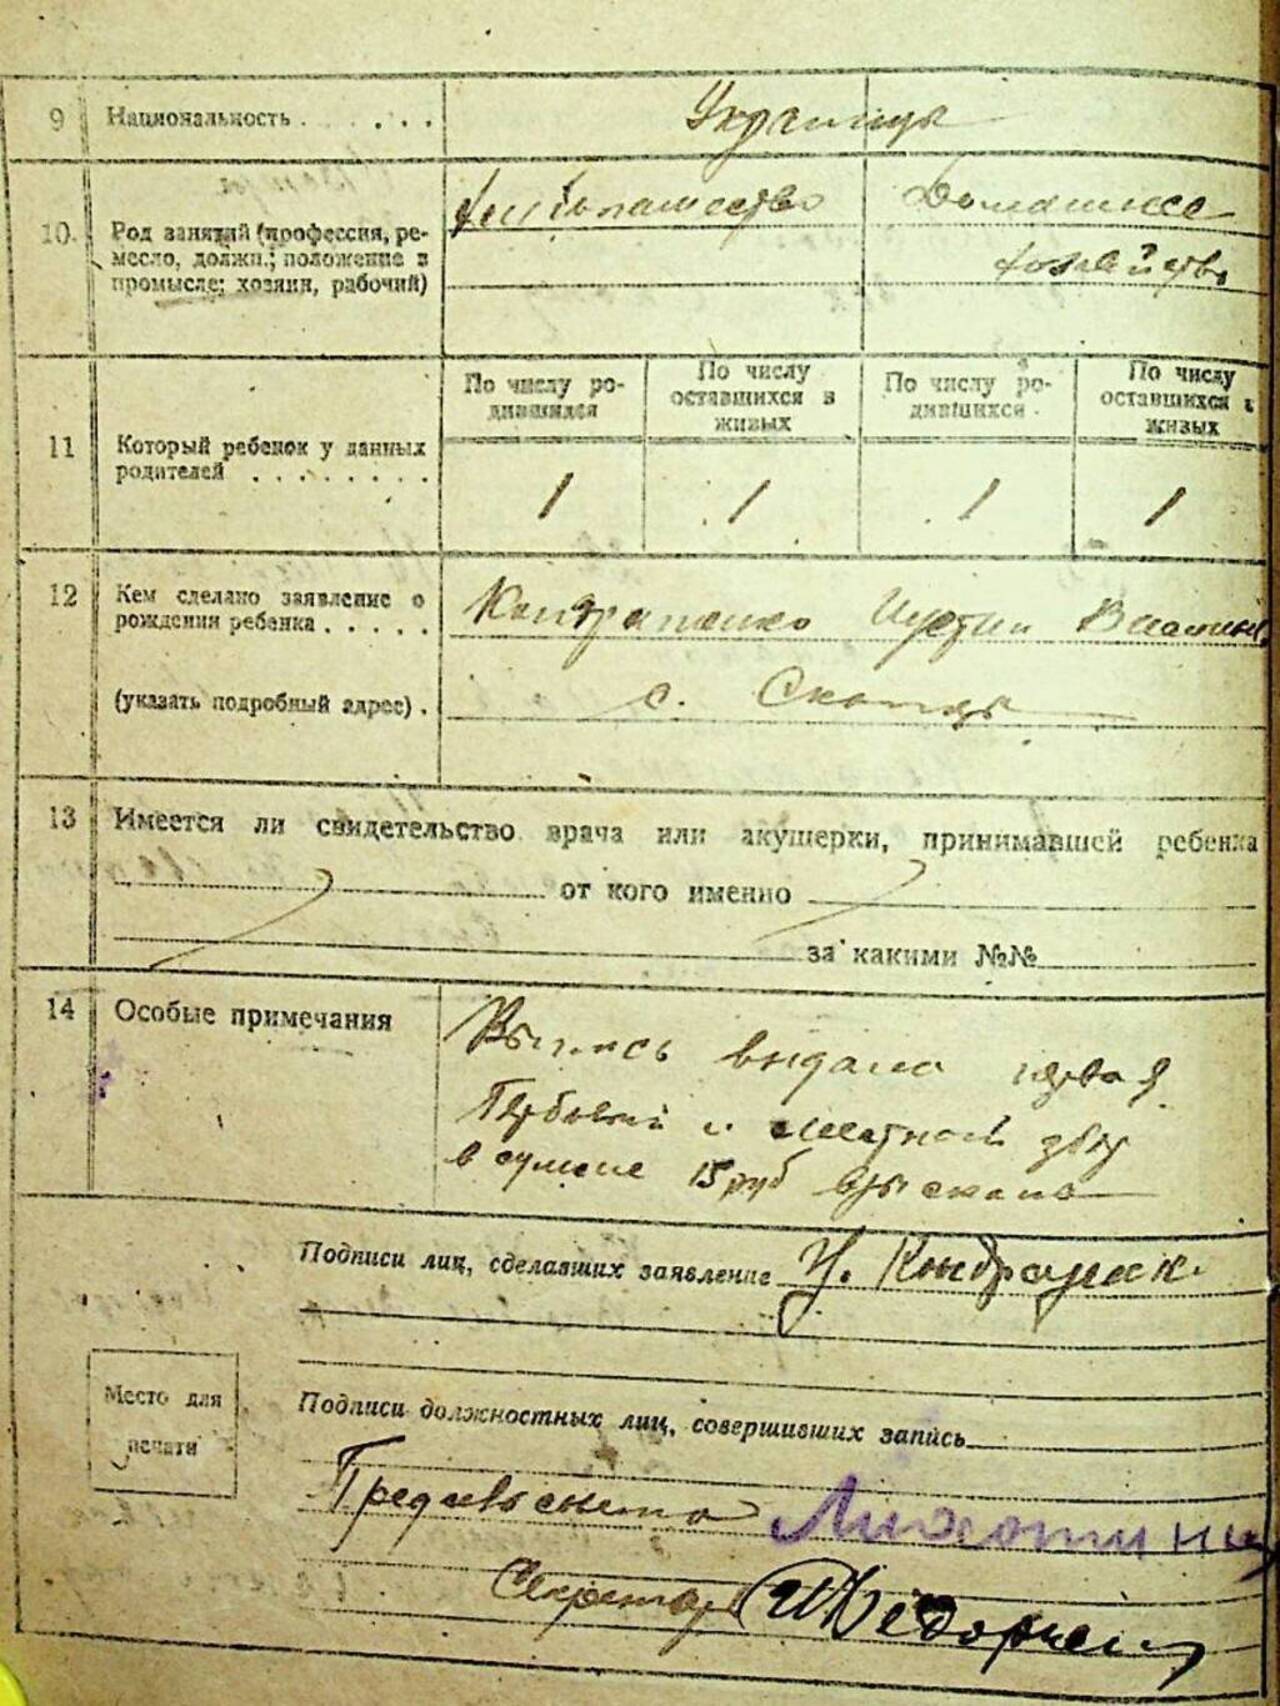 9 Национальность . . . . Украинцы
10. Род занятий (профессия, ре-
месло, должн.; положение в
промысле; хозяин, рабочий)
Хлебопашество Домашнее
хозяйство
11 Который ребенок у данных
родителей . . . . . . . .
По числу ро-
дившихся
По числу
оставшихся в
живых
По числу ро-
дившихся
По числу
оставшихся в
живых
1 1 1 1
12 Кем сделано заявление о
рождении ребенка . . . . .
Кондратенко Иустин
(указать подробный адрес) .
с. Скопцы
13 Имеется ли свидетельство врача или акушерки, принимавшей ребенка
от кого именно
за какими №№
14 Особые примечания
Выпись выдана первая
Гербовый и местный сбор
в сумме 15 руб взыскано
Подписи лиц, сделавших заявление И. Кондратенк
Место для
печати
Подписи должностных лиц, совершивших запись
Пред
Секретарь